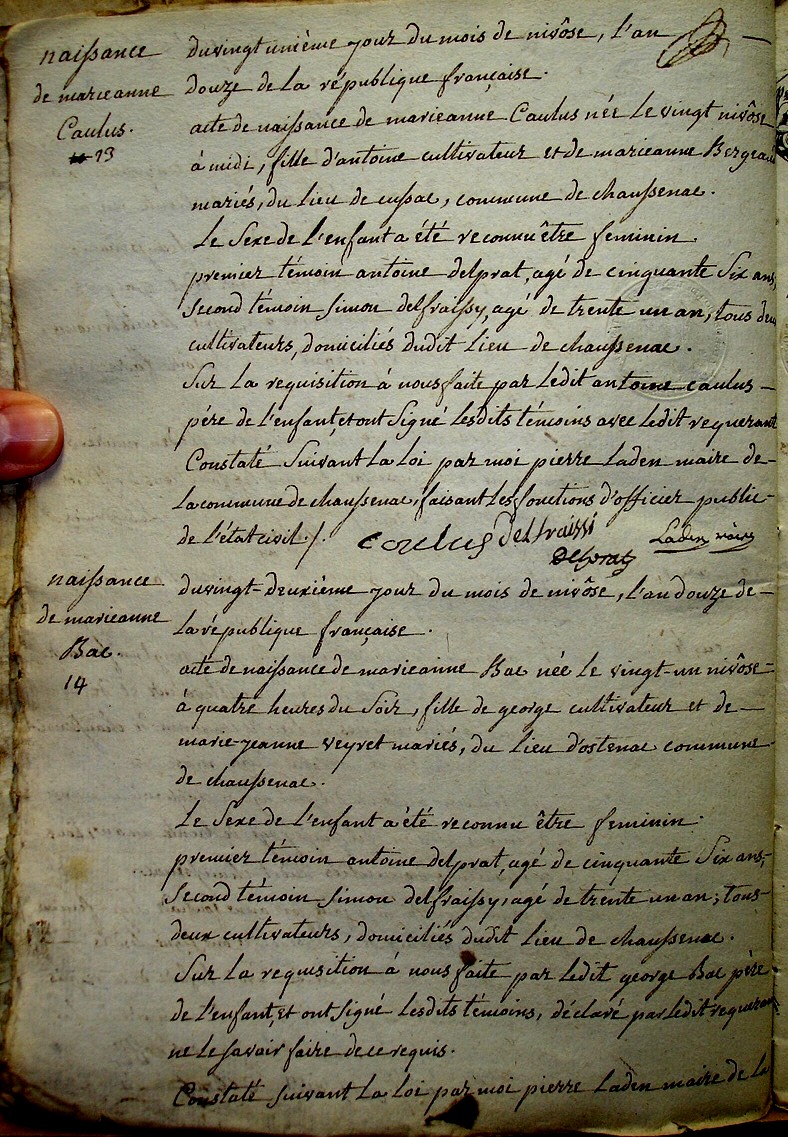 naissance
de marieanne
Caulus.
13
du vingt unième jour du mois de nivôse, l'an
douze de la république française.
acte de naissance de marieanne Caulus née le vingt nivôse
à midi, fille d'antoine cultivateur et de marieanne
mariés, du lieu de cussac, commune de chaussenac.
Le Sexe de l'enfant a été reconnu être feminin.
premier témoin antoine delprat, agé de cinquante Six ans,
Second témoin Simon delfraissy, agé de trente un an, tous deux
cultivateurs, domiciliés dudit Lieu de chaussenac.
Sur la requisition à nous faite par ledit antoine caulus
père de l'enfant, et ont Signé lesdits témoins avec ledit requerant
Constaté Suivant la Loi par moi pierre Laden maire de
la commune de chaussenac, faisant les fonctions d'officier public
de l'état civil ./.
coulus delfraissi Laden maire
Delprat
naissance
de marieanne
Bac.
14
du vingt-deuxième jour du mois de nivôse, l'an douze de
la république française.
acte de naissance de marieanne Bac née le vingt-un nivôse
à quatre heures du Soir, fille de george cultivateur et de
marie-jeanne veyret mariés, du lieu d'ostenac commune
de chaussenac.
Le Sexe de l'enfant a été reconnu être feminin.
premier témoin antoine delprat, agé de cinquante Six ans;
Second témoin Simon delfraissy, agé de trente un an; tous
deux cultivateurs, domiciliés dudit lieu de chaussenac.
Sur la requisition à nous faite par ledit george Bac père
de l'enfant, et ont signé lesdits témoins, déclaré par ledit requerant
ne le savoir faire de ce requis.
Constaté suivant la Loi par moi pierre Laden maire de la